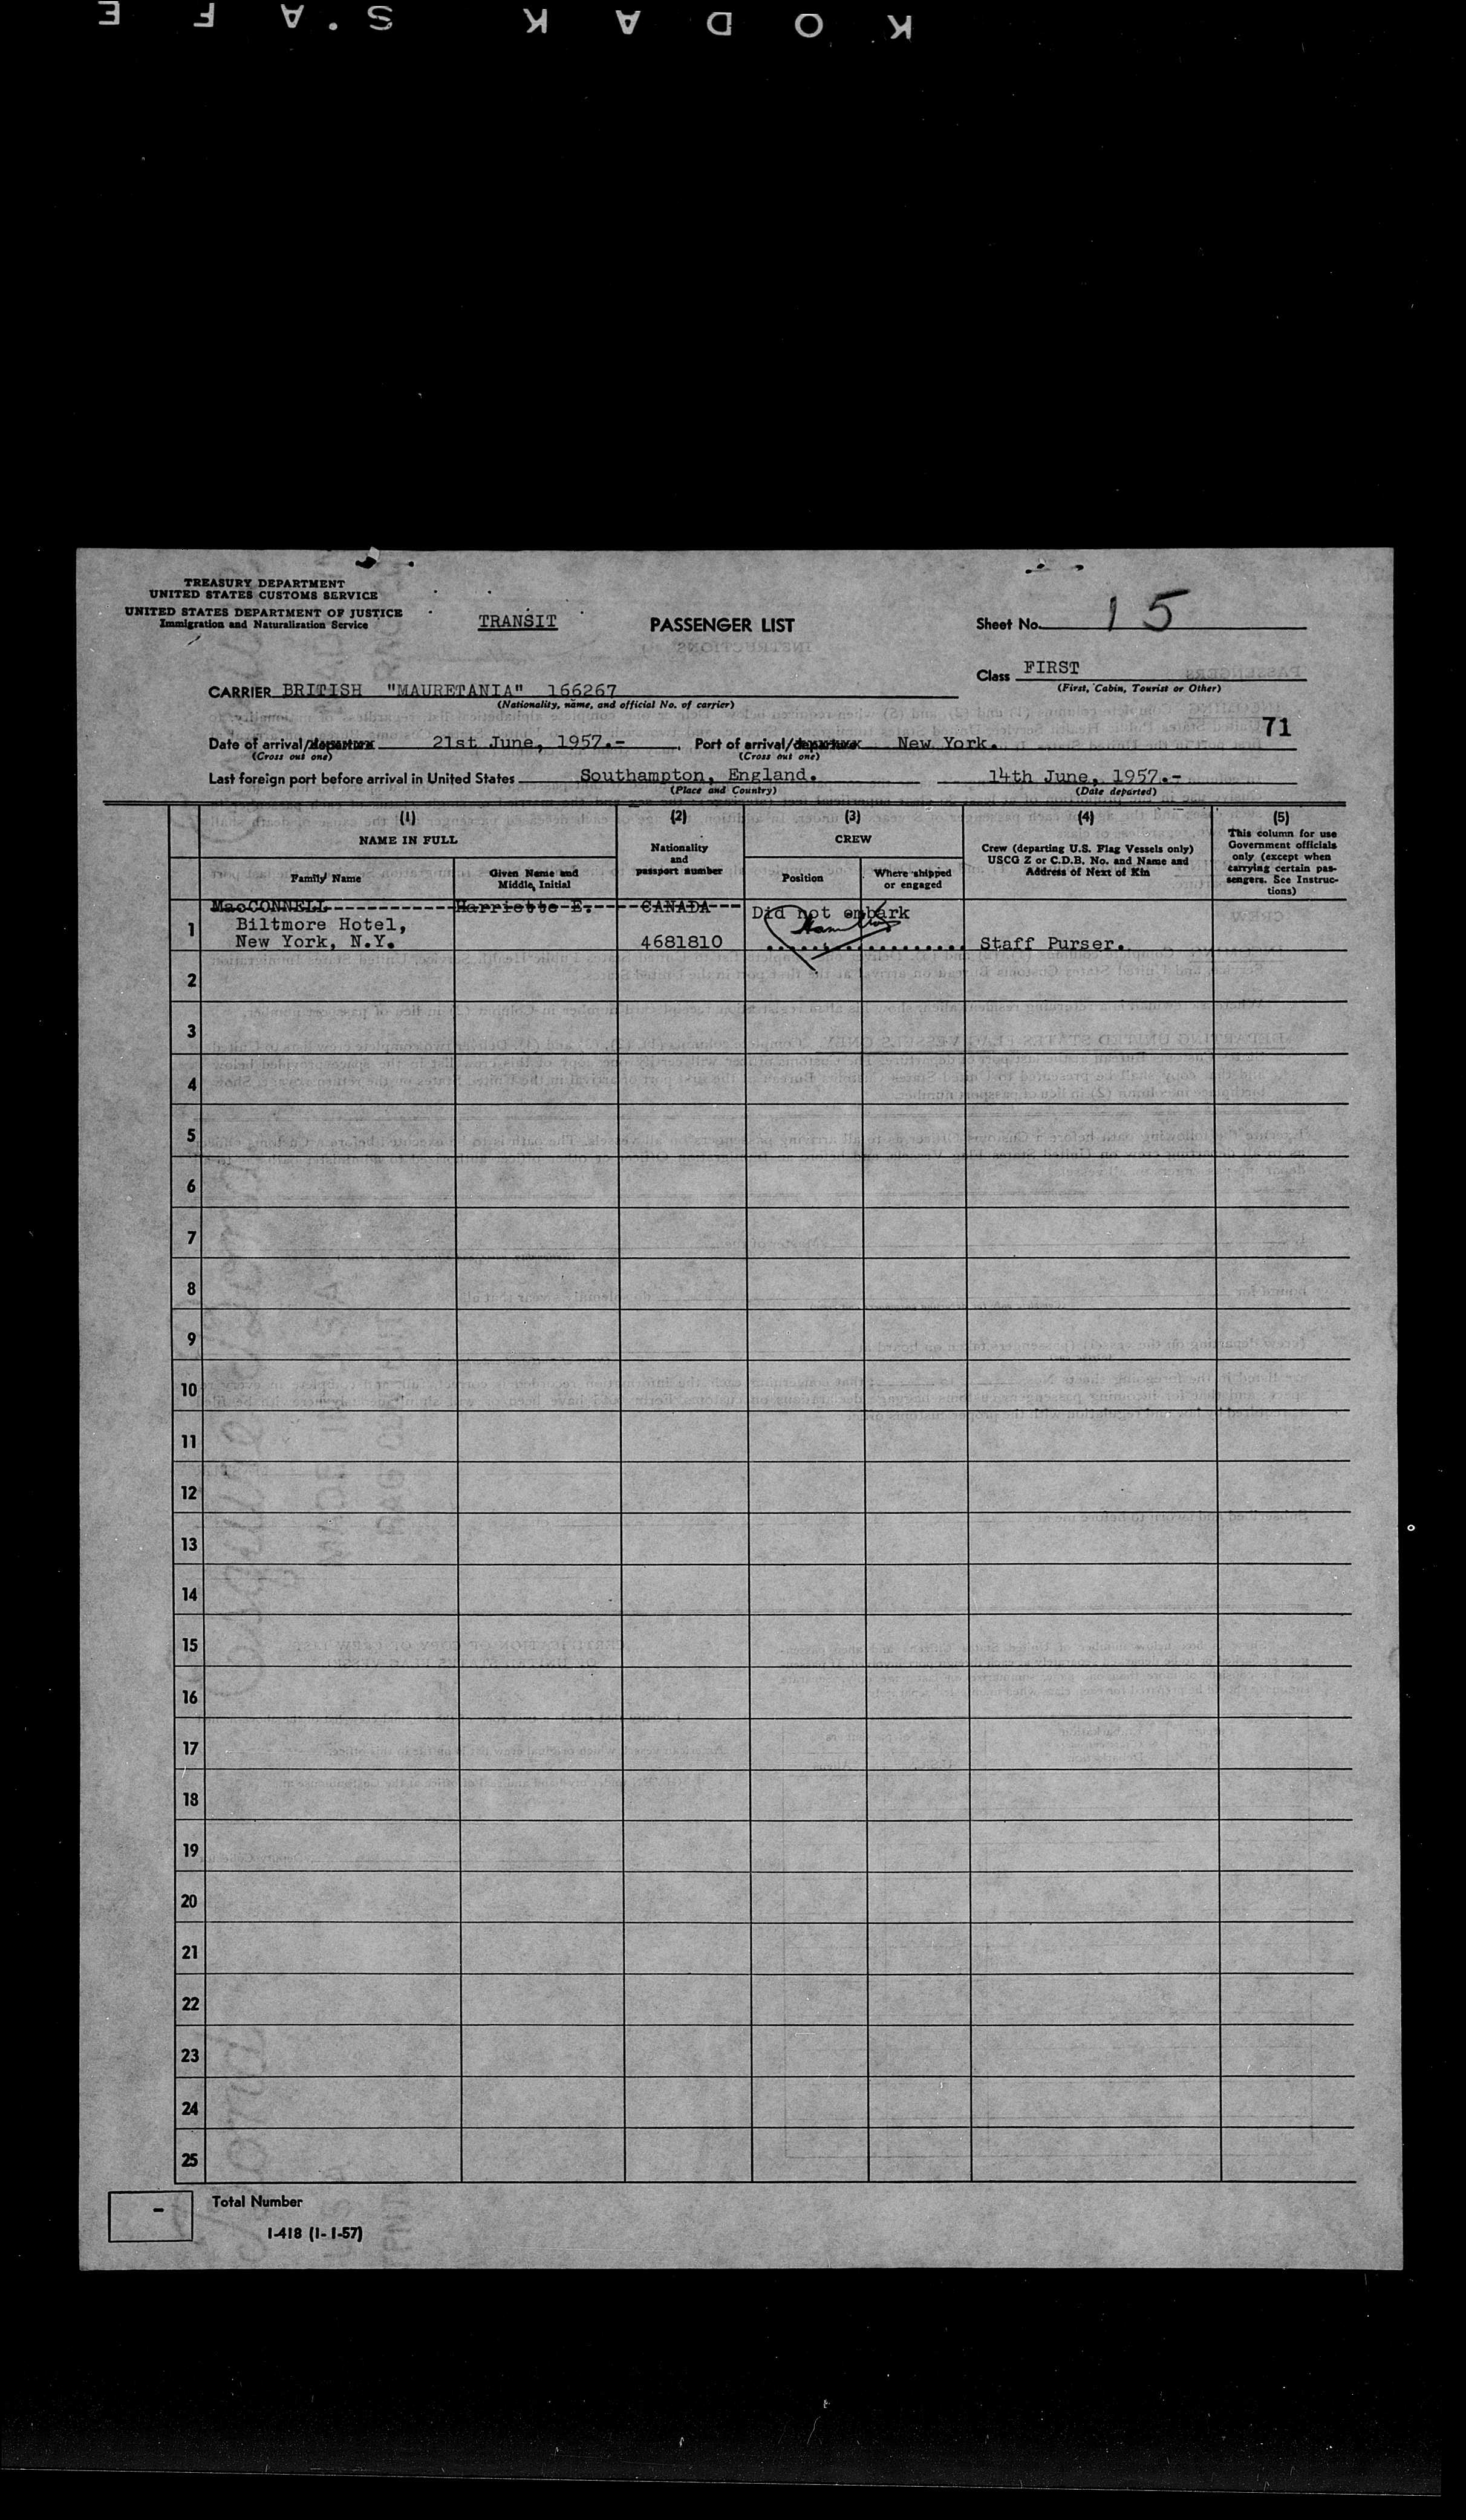 KODAK S.A F E
TREASURY DEPARTMENT
UNITED STATES CUSTOMS SERVICE
UNITED STATES DEPARTMENT OF JUSTICE
Immigration and Naturalization Service
TRANSIT
PASSENGER LIST
Sheet No. 15
Class FIRST
(First, Cabin, Tourist or Other)
CARRIER BRITISH "MAURETANIA" 166267
(Nationality, name, and official No. of carrier)
71
Date of arrival/departure 21st June, 1957.- Port of arrival/departure New York.
(Cross out one) (Cross out one)
Last foreign port before arrival in United States Southampton, England. 14th June, 1957.-
(Place and Country) (Date departed)
(1)
NAME IN FULL
Family Name
Given Name and Middle Initial
(2)
Nationality
and
passport number
(3)
CREW
Position
Where shipped
or engaged
(4)
Crew (departing U.S. Flag Vessels only)
USCG Z or C.D.B. No. and Name and
Address of Next of Kin
(5)
This column for use
Government officials
only (except when
carrying certain pas-
sengers. See Instruc-
tions)
MacCONNELL Harriette E. CANADA Did not embark
1 Biltmore Hotel,
New York, N.Y. 4681810 Staff Purser.
2
3
4
5
6
7
8
9
10
11
12
13
14
15
16
17
18
19
20
21
22
23
24
25
- Total Number
I-418 (1-1-57)